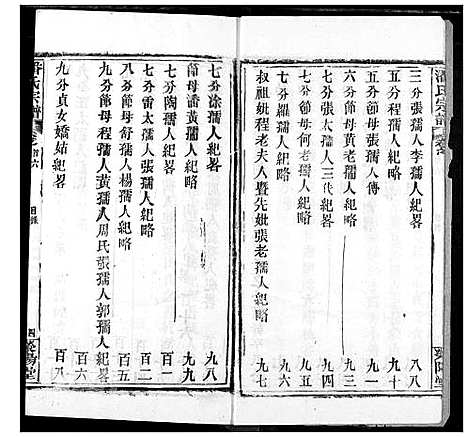 三分張孺人李孺人紀畧 八八
五分程孺人紀略 九十
五分孺人傳 九一
六分節母黃老孺人紀略 九三
七分張太孺人三代紀畧 九四
七分節母何老孺人紀畧 九五
七分羅孺人紀略 九六
叔祖妣程老夫人暨先妣張老孺人紀略 九七
七分涂孺人紀畧 九八
節母潘黃孺人紀略 九九
七分陶孺人紀畧 百一
七分雷太孺人紀略 百二
八分節母舒孺人楊孺人紀略 百五
八分節母程孺人黃孺人周氏張孺人郭孺人紀畧 百六
九分貞女嬌姑紀畧 百八
氏宗譜
目錄
四
堂